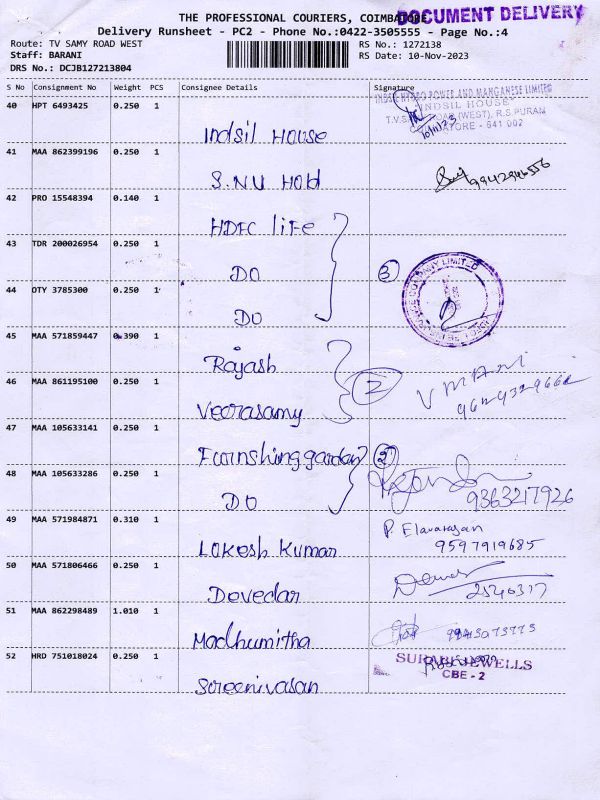 THE PROFESSIONAL COURIERS, COIMBATORE
DOCUMENT DELIVERY
Delivery Runsheet - PC2 - Phone No.:0422-3505555 - Page No.:4
Route: TV SAMY ROAD WEST
RS No.: 1272138
Staff: BARANI
RS Date: 10-Nov-2023
DRS No.: DCJB127213804
S No Consignment No Weight PCS Consignee Details Signature
40 HPT 6493425 0.250 1
INDSIL HYDRO POWER AND MANGANESE LIMITED
"INDSIL HOUSE"
(WEST), R.S.PURAM
COIMBATORE - 641 002
10/11/23
Indsil House
41 MAA 862399196 0.250 1
S.NU Hobl
42 PRO 15548394 0.140 1
HDFC life
43 TDR 200026954 0.250 1
DO 3
44 OTY 3785300 0.250 1
DO
45 MAA 571859447 0.390 1
Rajash
46 MAA 861195100 0.250 1
2 V MANI
Veerasamy
47 MAA 105633141 0.250 1
Furnshing garden 2
48 MAA 105633286 0.250 1
DO 9363217926
49 MAA 571984871 0.310 1
P. Elavarasan
Lokesh Kumar 9597919685
50 MAA 571806466 0.250 1
Devedar 2540317
51 MAA 862298489 1.010 1
Madhumitha
52 HRD 751018024 0.250 1
JEWELLS
CBE - 2
Sreenivasan